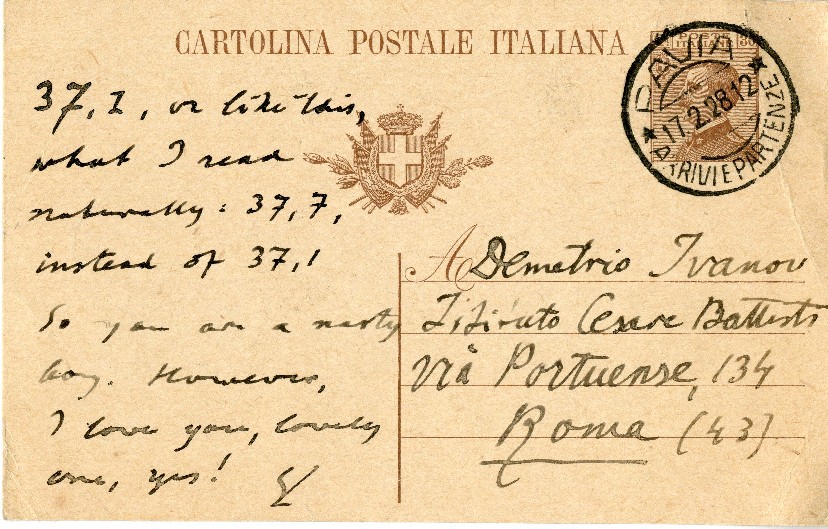 CARTOLINA POSTALE ITALIANA
PAVIA
17.2.28 12
ARRIVI E PARTENZE
37,1, or like this,
what I read
naturally: 37,7,
instead of 37,1
So you are a nasty
boy. However,
I love you, lovely
one, yes!
A Demetrio Ivanov
Istituto Cesare Battisti
Via Portuense, 134
Roma (43)